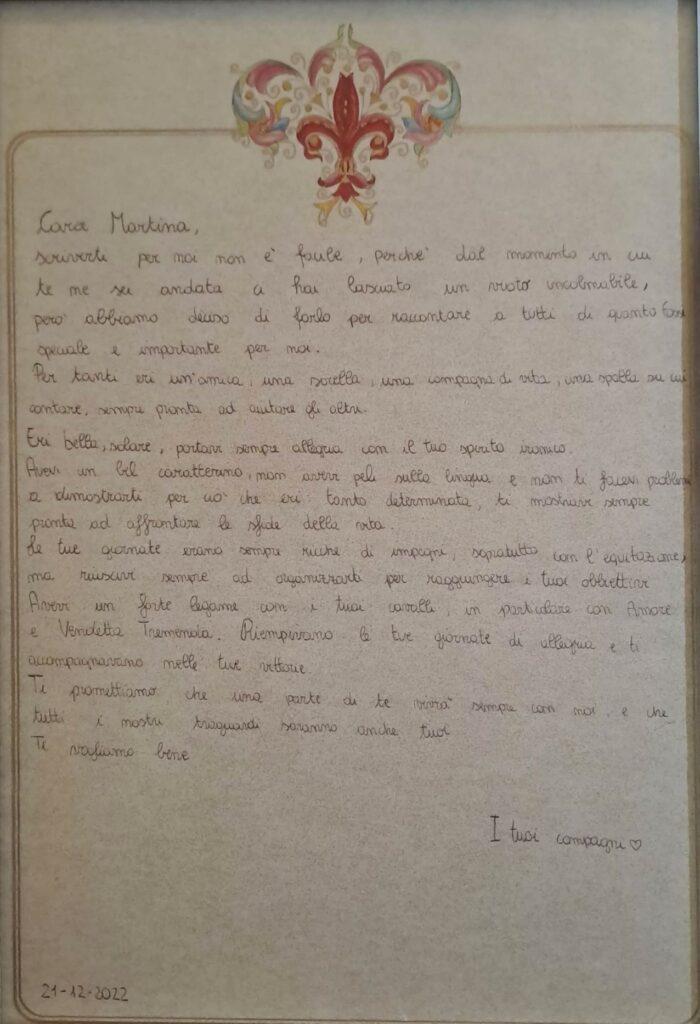 Cara Martina,
scriverti per noi non è facile, perchè dal momento in cui
te ne sei andata ci hai lasciato un vuoto incolmabile,
però abbiamo deciso di farlo per raccontare a tutti di quanto fossi
speciale e importante per noi.
Per tanti eri un'amica, una sorella, una compagna di vita, una spalla su cui
contare, sempre pronta ad aiutare gli altri.
Eri bella, solare, portavi sempre allegria con il tuo spirito ironico.
Avevi un bel caratterino, non avevi peli sulla lingua e non ti facevi problemi
a dimostrarti per ciò che eri tanto determinata, ti mostravi sempre
pronta ad affrontare le sfide della vita.
Le tue giornate erano sempre ricche di impegni, sopratutto con l'equitazione,
ma riuscivi sempre ad organizzarti per raggiungere i tuoi obbiettivi
Avevi un forte legame con i tuoi cavalli, in particolare con Amore
e Vendetta Tremenda. Riempivano le tue giornate di allegria e ti
accompagnavano nelle tue vittorie
Ti promettiamo che una parte di te vivrà sempre con noi e che
tutti i nostri traguardi saranno anche tuoi
Ti vogliamo bene
I tuoi compagni ♡
21-12-2022